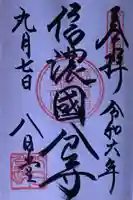 奉拝 令和六年
信濃國分寺
八日堂
九月七日